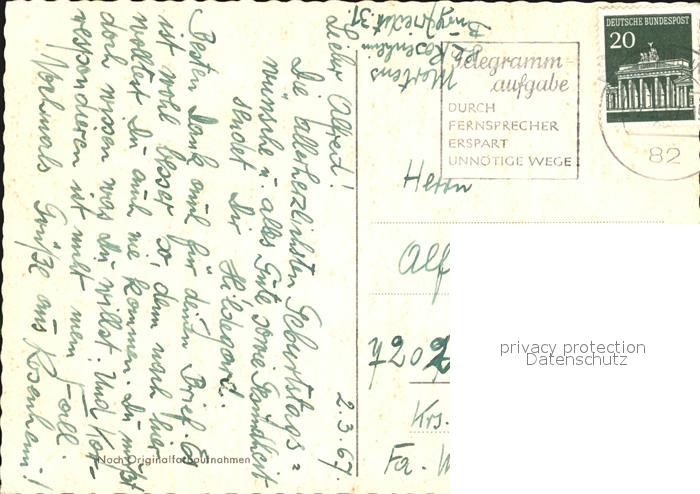 2.3.67
Lieber Alfred!
Die allerherzlichsten Geburtstags=
wünsche u. alles Gute sowie Gesundheit
sendet Dir Hildegard.
Besten Dank auch für deinen Brief. Es
ist wohl besser so, denn nach hier
wolltest Du auch nie kommen. Du mußt
doch wissen was Du willst. Und Kor-
respondieren ist nicht mein Fall.
Nochmals Grüße aus Rosenheim!
Nach Originalfarbaufnahmen
Mertens
Rosenheim
31
Telegramm-
aufgabe
DURCH
FERNSPRECHER
ERSPART
UNNÖTIGE WEGE
DEUTSCHE BUNDESPOST
20
82
Herrn
Alf
7202
Krs.
Fa.
privacy protection
Datenschutz